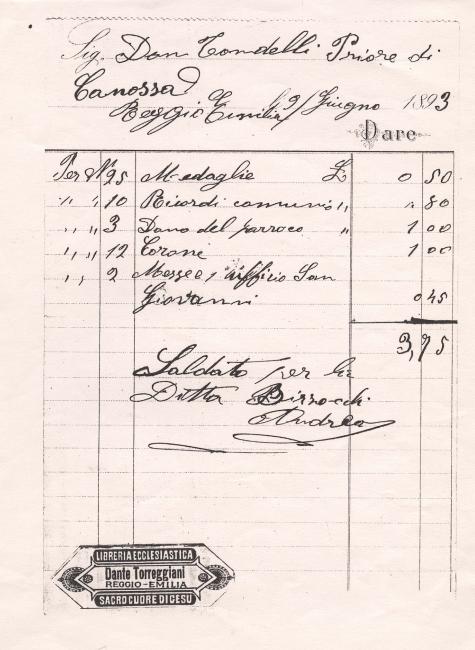 Sig. Don Tondelli Priore di
Canossa
Reggio Emilia li 9/Giugno 1893
Dare
Per N. 25 Medaglie £ 0 50
" " 10 Ricordi comunio " " 80
" " 3 Dono del parroco " 1 00
" " 12 Corone 1 00
" " 2 Messe e uffizio San
Giovanni 0 45
3,75
Saldato per la
Ditta Bizzocchi
Andrea
LIBRERIA ECCLESIASTICA
Dante Torreggiani
REGGIO-EMILIA
SACRO CUORE DI GESU